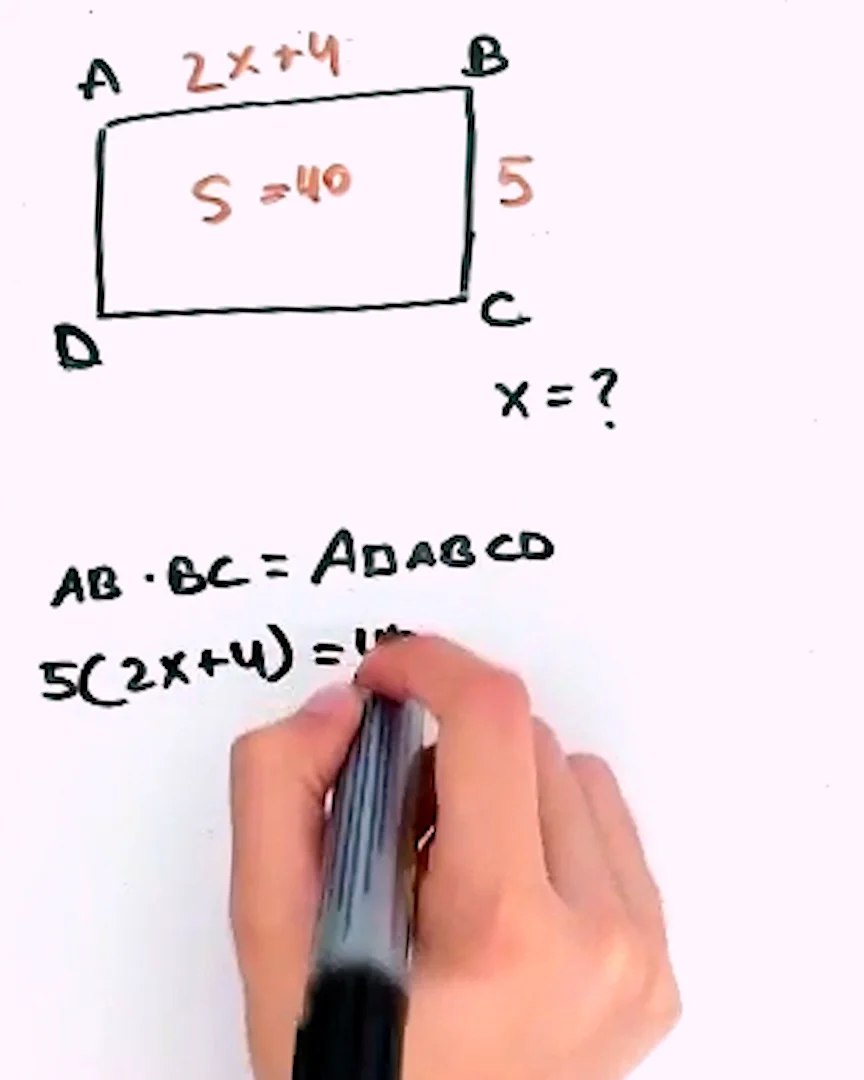 A 2x+4 B
S=40 5
D C
x=?
AB·BC=A□ABCD
5(2x+4)=